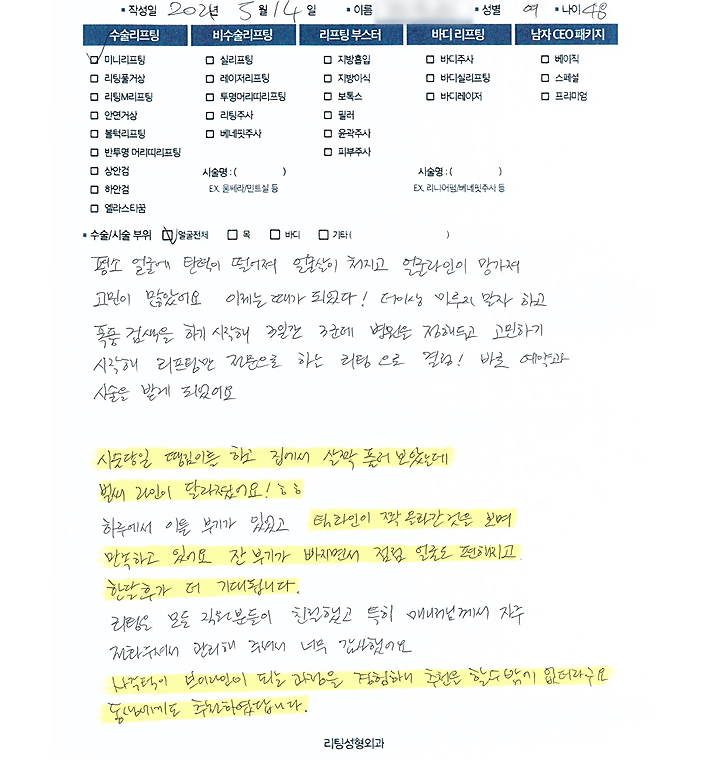 • 작성일 2021년 5월 14일 • 이름 • 성별 여 • 나이 48
수술리프팅 비수술리프팅 리프팅 부스터 바디 리프팅 남자 CEO 패키지
미니리프팅 실리프팅 지방흡입 바디주사 베이직
리팅풀거상 레이저리프팅 지방이식 바디실리프팅 스페셜
리팅M리프팅 투명머리띠리프팅 보톡스 바디레이저 프리미엄
안면거상 리팅주사 필러
볼턱리프팅 베네핏주사 윤곽주사
반투명 머리띠리프팅 피부주사
상안검 시술명 : ( ) 시술명 : ( )
하안검 EX. 울쎄라/민트실 등 EX. 리니어펌/베네핏주사 등
엘라스티꿈
• 수술/시술 부위 얼굴전체 목 바디 기타 ( )
평소 얼굴에 탄력이 떨어져 얼굴살이 쳐지고 얼굴라인이 망가져
고민이 많았어요 이제는 때가 되었다! 더이상 미루지 말자 하고
폭풍 검색을 하기 시작해 3일간 3군데 병원을 정해두고 고민하기
시작해 리프팅만 전문으로 하는 리팅으로 결정! 바로 예약과
시술을 받게 되었어요
시술당일 땡김이를 하고 집에서 살짝 풀러 보았는데
벌써 라인이 달라졌어요! ㅎㅎ
하루에서 이틀 부기가 있었고 턱라인이 짝 올라간것을 보며
만족하고 있어요 잔 부기가 빠지면서 점점 얼굴도 편해지고
한달후가 더 기대됩니다.
리팅은 모든 직원분들이 친절했고 특히 매니저님께서 자주
전화주셔서 관리해 주셔서 너무 감사했어요
사각턱이 브이라인이 되는 과정을 경험하니 추천은 할수밖에 없더라구요
동생에게도 추천하였답니다.
리팅성형외과